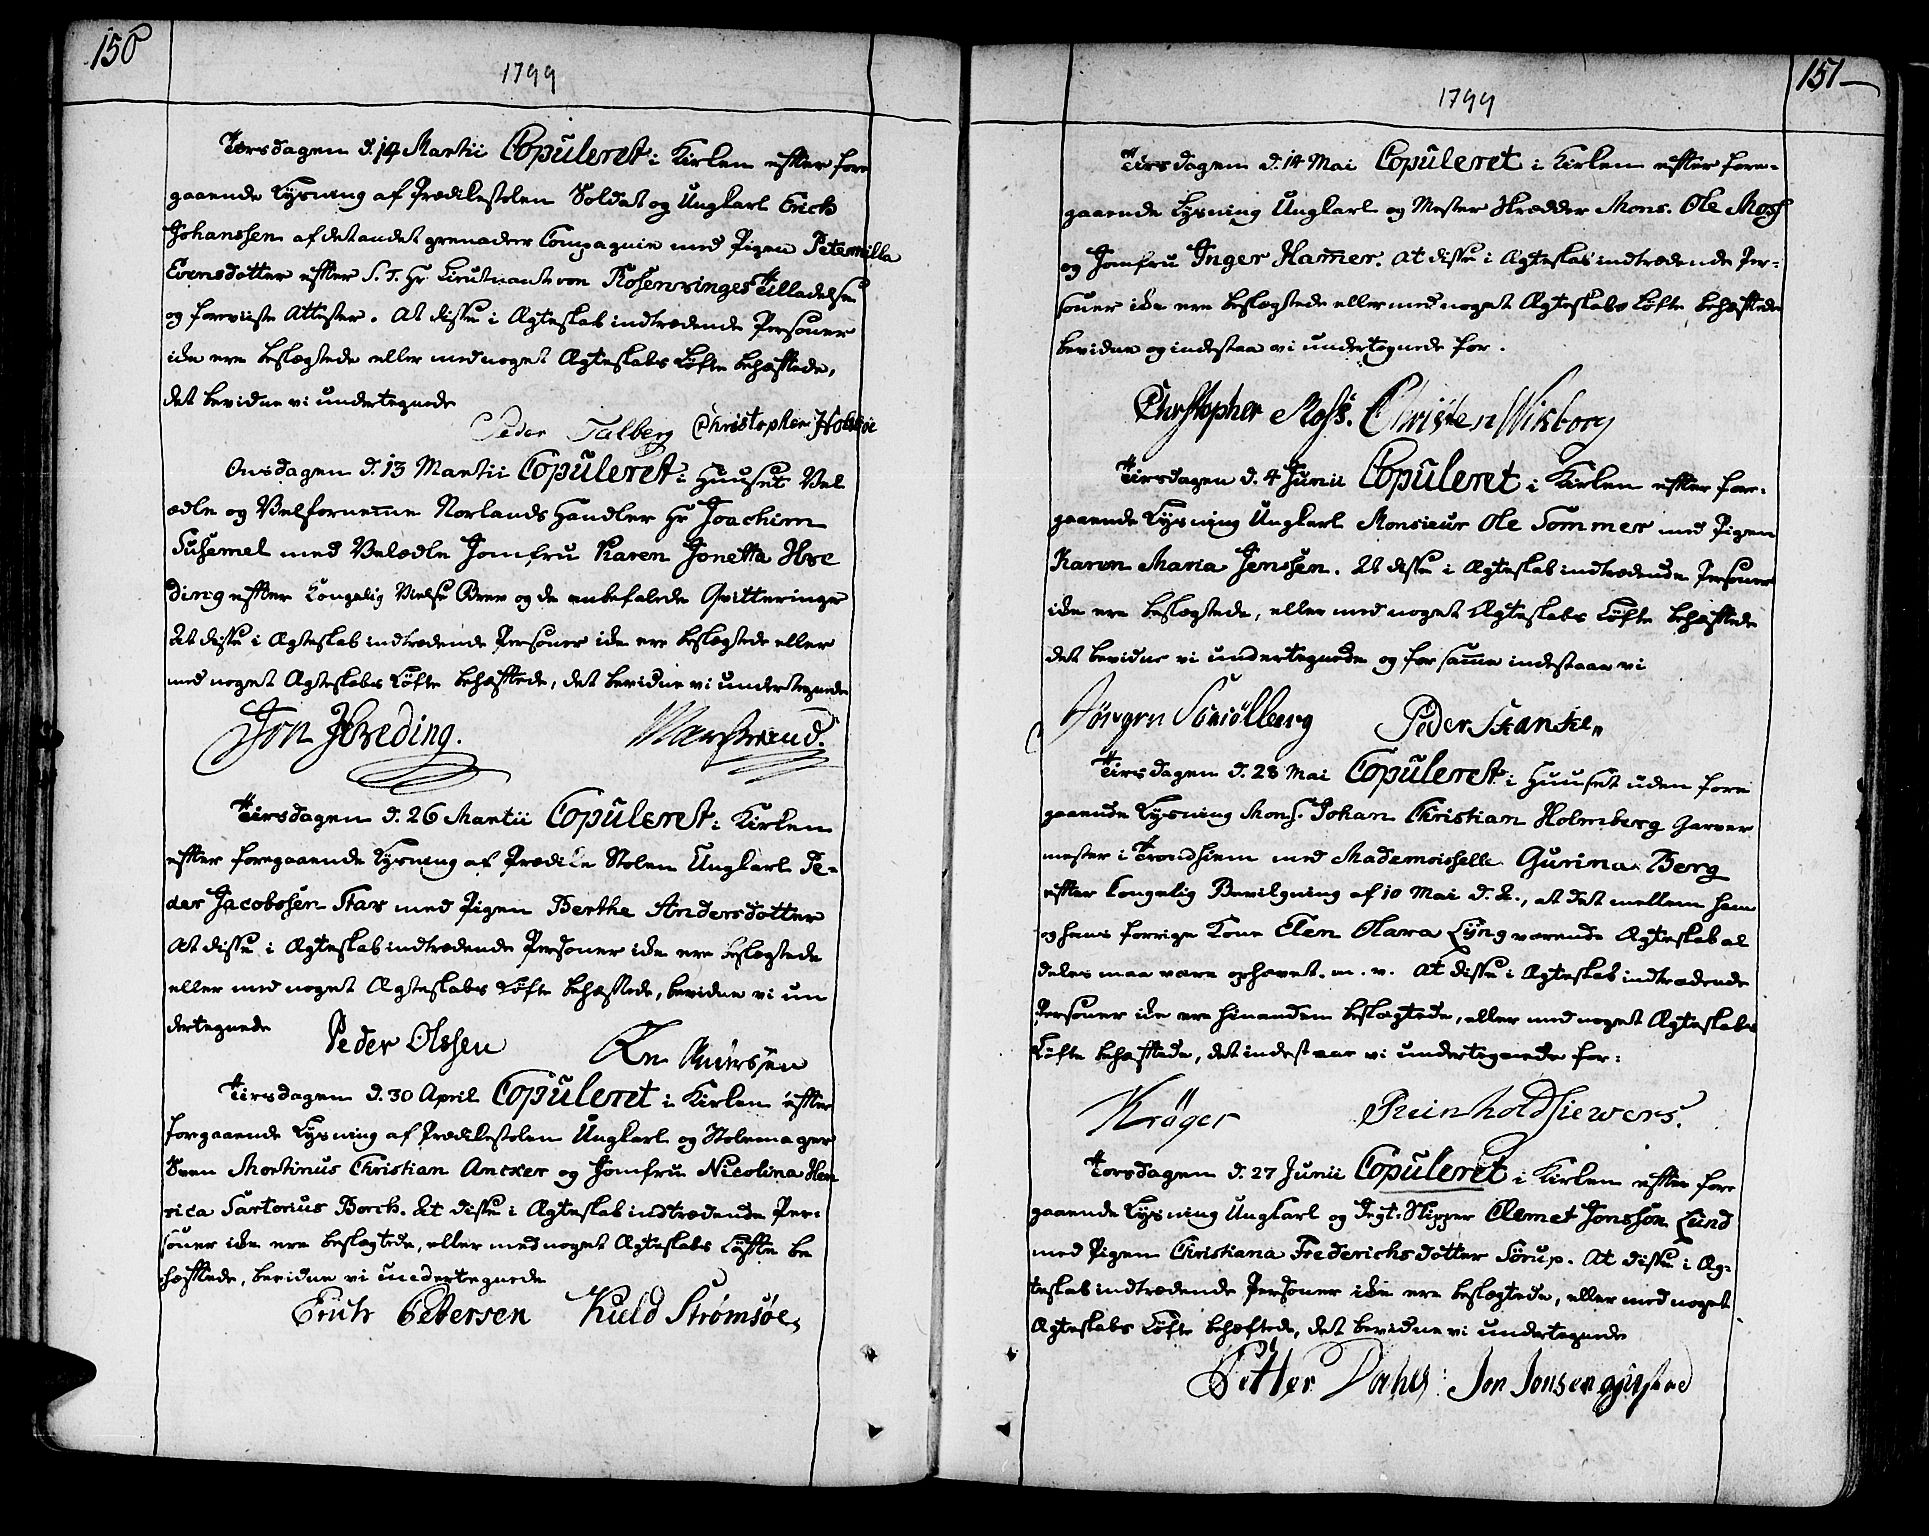 150
1799
Torsdagen d. 14 Martii Copuleret i Kirken efter fore
gaaende Lysning af Prædikestolen Soldat og Ungkarl Erich
Johanssen af det andet grenadeer Compagnie med Pigen Peternilla
Evensdotter efter S. T. Hr Lieutnant von Rosenvinges Tilladelse
og foreviiste Attester. At disse i Ægteskab indtrædende Personer
ikke ere beslægtede eller med noget Ægteskabs Løfte behæftede,
det bevidne vi undertegnede
Peder Talberg Christopher
Onsdagen d. 13 Martii Copuleret i Huuset Vel
ædle og Velfornemme Norlands Handler Hr Joachim
Susemel med Velædle Jomfru Karen Jonetta Hve
ding efter Kongelig Vielse Brev og de anbefalede Qvitteringer
At disse i Ægteskab indtrædende Personer ikke ere beslægtede eller
med noget Ægteskabs Løfte behæftede, det bevidne vi undertegnede
Jon Hveding. Marstrand.
Tiirsdagen d. 26 Martii Copuleret i Kirken
efter foregaaende Lysning af Prædike Stolen Ungkarl Pe-
der Jacobsen Star med Pigen Berthe Andersdotter
At disse i Ægteskab indtrædende Personer ikke ere beslægtede
eller med noget Ægteskabs Løfte behæftede, bevidne vi un
dertegnede Peder Olssen An Andersen
Tiirsdagen d. 30 April Copuleret i Kirken efter
forgaaende Lysning af Prædikestolen Ungkarl og Stolemager
Svem Mortinus Christian Ancker og Jomfru Nicolina Hen
rica Sartorius Borch. At disse i Ægteskab indtrædende Per-
soner ikke ere beslægtede, eller med noget Ægteskabs Løfte be
hæftede, bevidne vi undertegnede
Erich Petersen Kuld Strømsøe
151
1799
Tiirsdagen d. 14 Mai Copuleret i Kirken efter fore-
gaaende Lysning Ungkarl og Mester Skrædder Mons. Ole Moss
og Jomfru Inger Hamer. At disse i Ægteskab indtrædende Per-
soner ikke ere beslægtede eller med noget Ægteskabs Løfte behæftede
bevidne og indestaa vi undertegnede for.
Christopher Moss. Christen Wisborg
Tiirsdagen d. 4 Junii Copuleret i Kirken efter for-
gaaende Lysning Ungkarl Monsieur Ole Sommer med Pigen
Karen Maria Jenssen. At disse i Ægteskab indtrædende Personer
ikke ere beslægtede, eller med noget Ægteskabs Løfte behæftede
det bevidne vi undertegnede og for same indestaar vi
Jörgen Skiölberg Peder Skanke
Tiirsdagen d. 28 Mai Copuleret i Huuset uden fore
gaaende Lysning Mons. Johan Christian Holmberg Garver
mester i Trondhiem med Mademoiselle Gurina Berg
efter Kongelig Bevilgning af 10 Mai d. A., at det mellem ham
og hans forrige Kone Elen Olava Lyng værende Ægteskab al
deles maa være ophævet. m. v. At disse i Ægteskab indtrædende
Personer ikke ere hinanden beslægtede, eller med noget Ægteskabs
Løfte behæftede, det indestaar vi undertegnede for:
Krøger Reinhold Siewers.
Torsdagen d. 27 Junii Copuleret i Kirken efter for
gaaende Lysning Ungkarl og Jegt-Skipper Clemet Jonssøn Lund
med Pigen Christiana Frederichs dotter Sörup. At disse i Æg-
teskab indtrædende Personer ikke ere beslægtede, eller med noget
Ægteskabs Løfte behæftede, det bevidne vi undertegnede
Petter Dahl: Jon Jonsen